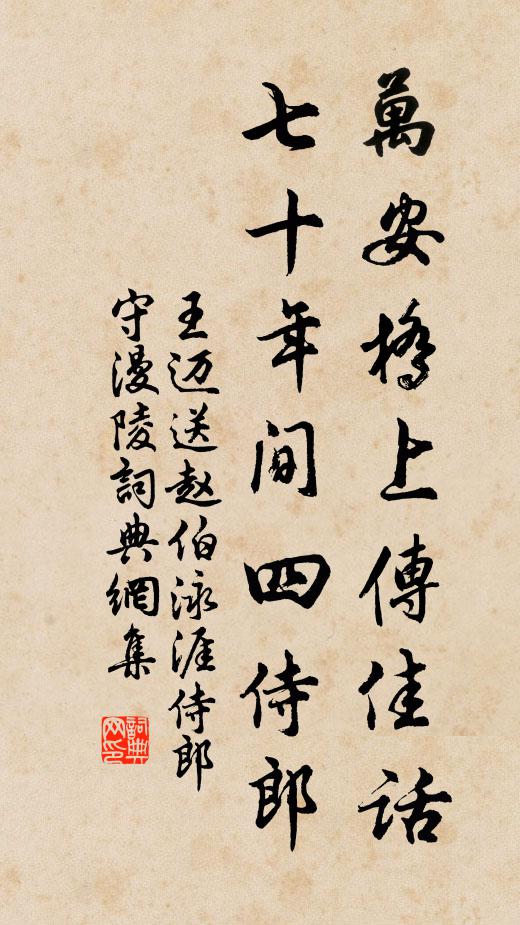 萬安橋上傳佳話
七十年間四侍郎
王迈送赵伯泳涯侍郎
守漫陵詞典網集
詞典网印